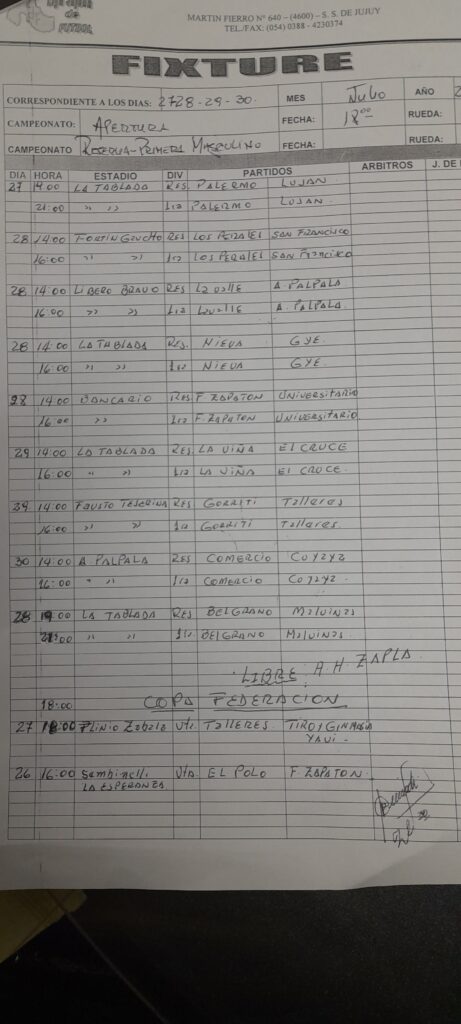 de FUTBOL
MARTIN FIERRO Nº 640 – (4600) – S. S. DE JUJUY
TEL./FAX: (054) 0388 - 4230374
FIXTURE
CORRESPONDIENTE A LOS DIAS: 2728-29-30. MES Julio AÑO 2
CAMPEONATO: APERTURA FECHA: 18 00 RUEDA:
CAMPEONATO RESERVA-PRIMERA MASCULINO FECHA: RUEDA:
DIA HORA ESTADIO DIV PARTIDOS ARBITROS J. DE
27 19:00 LA TABLADA RES. PALERMO LUJAN
21:00 " " 1ra PALERMO LUJAN
28 14:00 FORTIN GAUCHO RES LOS PERALES SAN FRANCISCO
16:00 " " 1ra LOS PERALES SAN FRANCISCO
28 14:00 LIBERO BRAVO RES A. PALPALA
16:00 " " 1ra A. PALPALA
28 14:00 LA TABLADA RES. NIEVA GYE.
16:00 " " 1ra NIEVA GYE.
28 14:00 BANCARIO RES F ZAPATON UNIVERSITARIO
16:00 " 1ra F. ZAPATON UNIVERSITARIO
29 14:00 LA TABLADA RES. LA VIÑA El CRUCE
16:00 " " 1ra LA VIÑA El CRUCE.
29 14:00 FAUSTO TESERINA RES GORRITI Talleres
16:00 " " 1ra GORRITI Talleres.
30 14:00 A PALPALA RES COMERCIO Cuyaya
16:00 " " 1ra COMERCIO Cuyaya.
28 19:00 LA TABLADA RES BELGRANO Malvinas
21:00 " " 1ra BELGRANO Malvinas.
LIBRE: A.H ZAPLA
18:00 COPA FEDERACION
27 Plinio Zabala TALLERES TIRO y GIMNASIA
YAVI -
26 16:00 EL POLO F. ZAPATON.
LA ESPERANZA